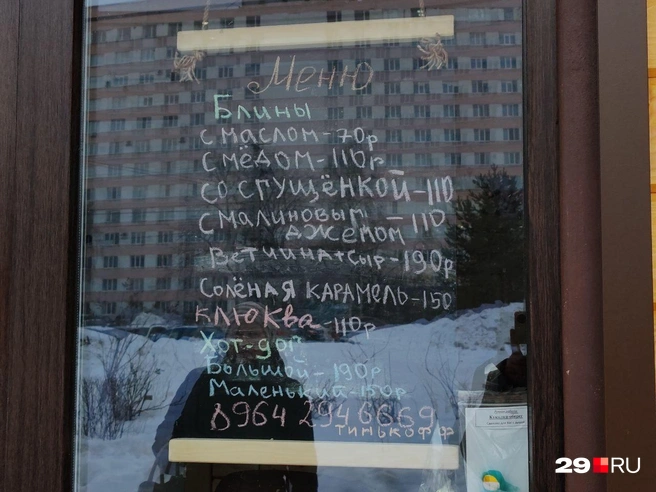 Меню
Блины
с маслом-70р
с мёдом-110р
со сгущёнкой-110
с малиновым
джемом-110
Ветчина+сыр-190р
Солёная карамель-150
Клюква-110р
Хот-дог
Большой-190р
Маленький-150р
8964 2946669
тинькофф
29.RU